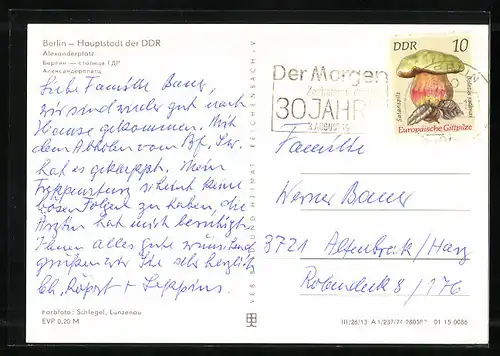 Berlin – Hauptstadt der DDR
Alexanderplatz
Берлин — столица ГДР
Александерплатц
Liebe Familie Bauer,
wir sind wieder gut nach
Hause gekommen. Mit
dem Abholen vom Bf.
hat es geklappt. Mein
scheint keine
bösen Folgen zu haben, die
Ärztin hat mich beruhigt.
Ihnen alles gute wünschend
grüßen wir Sie sehr herzlich
Ch.
Farbfoto: Schlegel, Lunzenau
EVP 0,20 M
VEB BILD UND HEIMAT REICHENBACH i. V.
Der Morgen
30 JAHR
3. AUGUST 19
DDR 10
Satanspilz
Boletus satanas
Europäische Giftpilze
Familie
Werner Bauer
3721 Altenbrak/Harz
III/26/13 A 1/237/74
01 15 0086